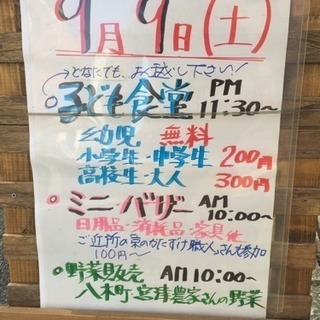 9月9日(土)
どなたでも、お越し下さい!
子ども食堂 PM 11:30~
幼児 無料
小学生・中学生 200円
高校生・大人 300円
ミニ・バザー AM 10:00~
日用品・消耗品・家具他
ご近所の家のかたずけ職人さんも参加
100円~
野菜販売 AM10:00~
八木町 宮津農家さんの野菜